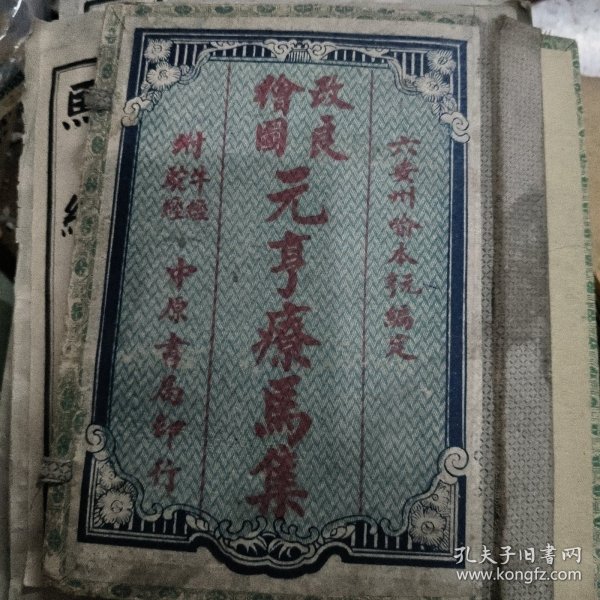 六安州喻本編定
改良
繪圖
元亨療馬集
附
牛經
駝經
中原書局印行
馬經
孔夫子旧书网
www.kongfz.com